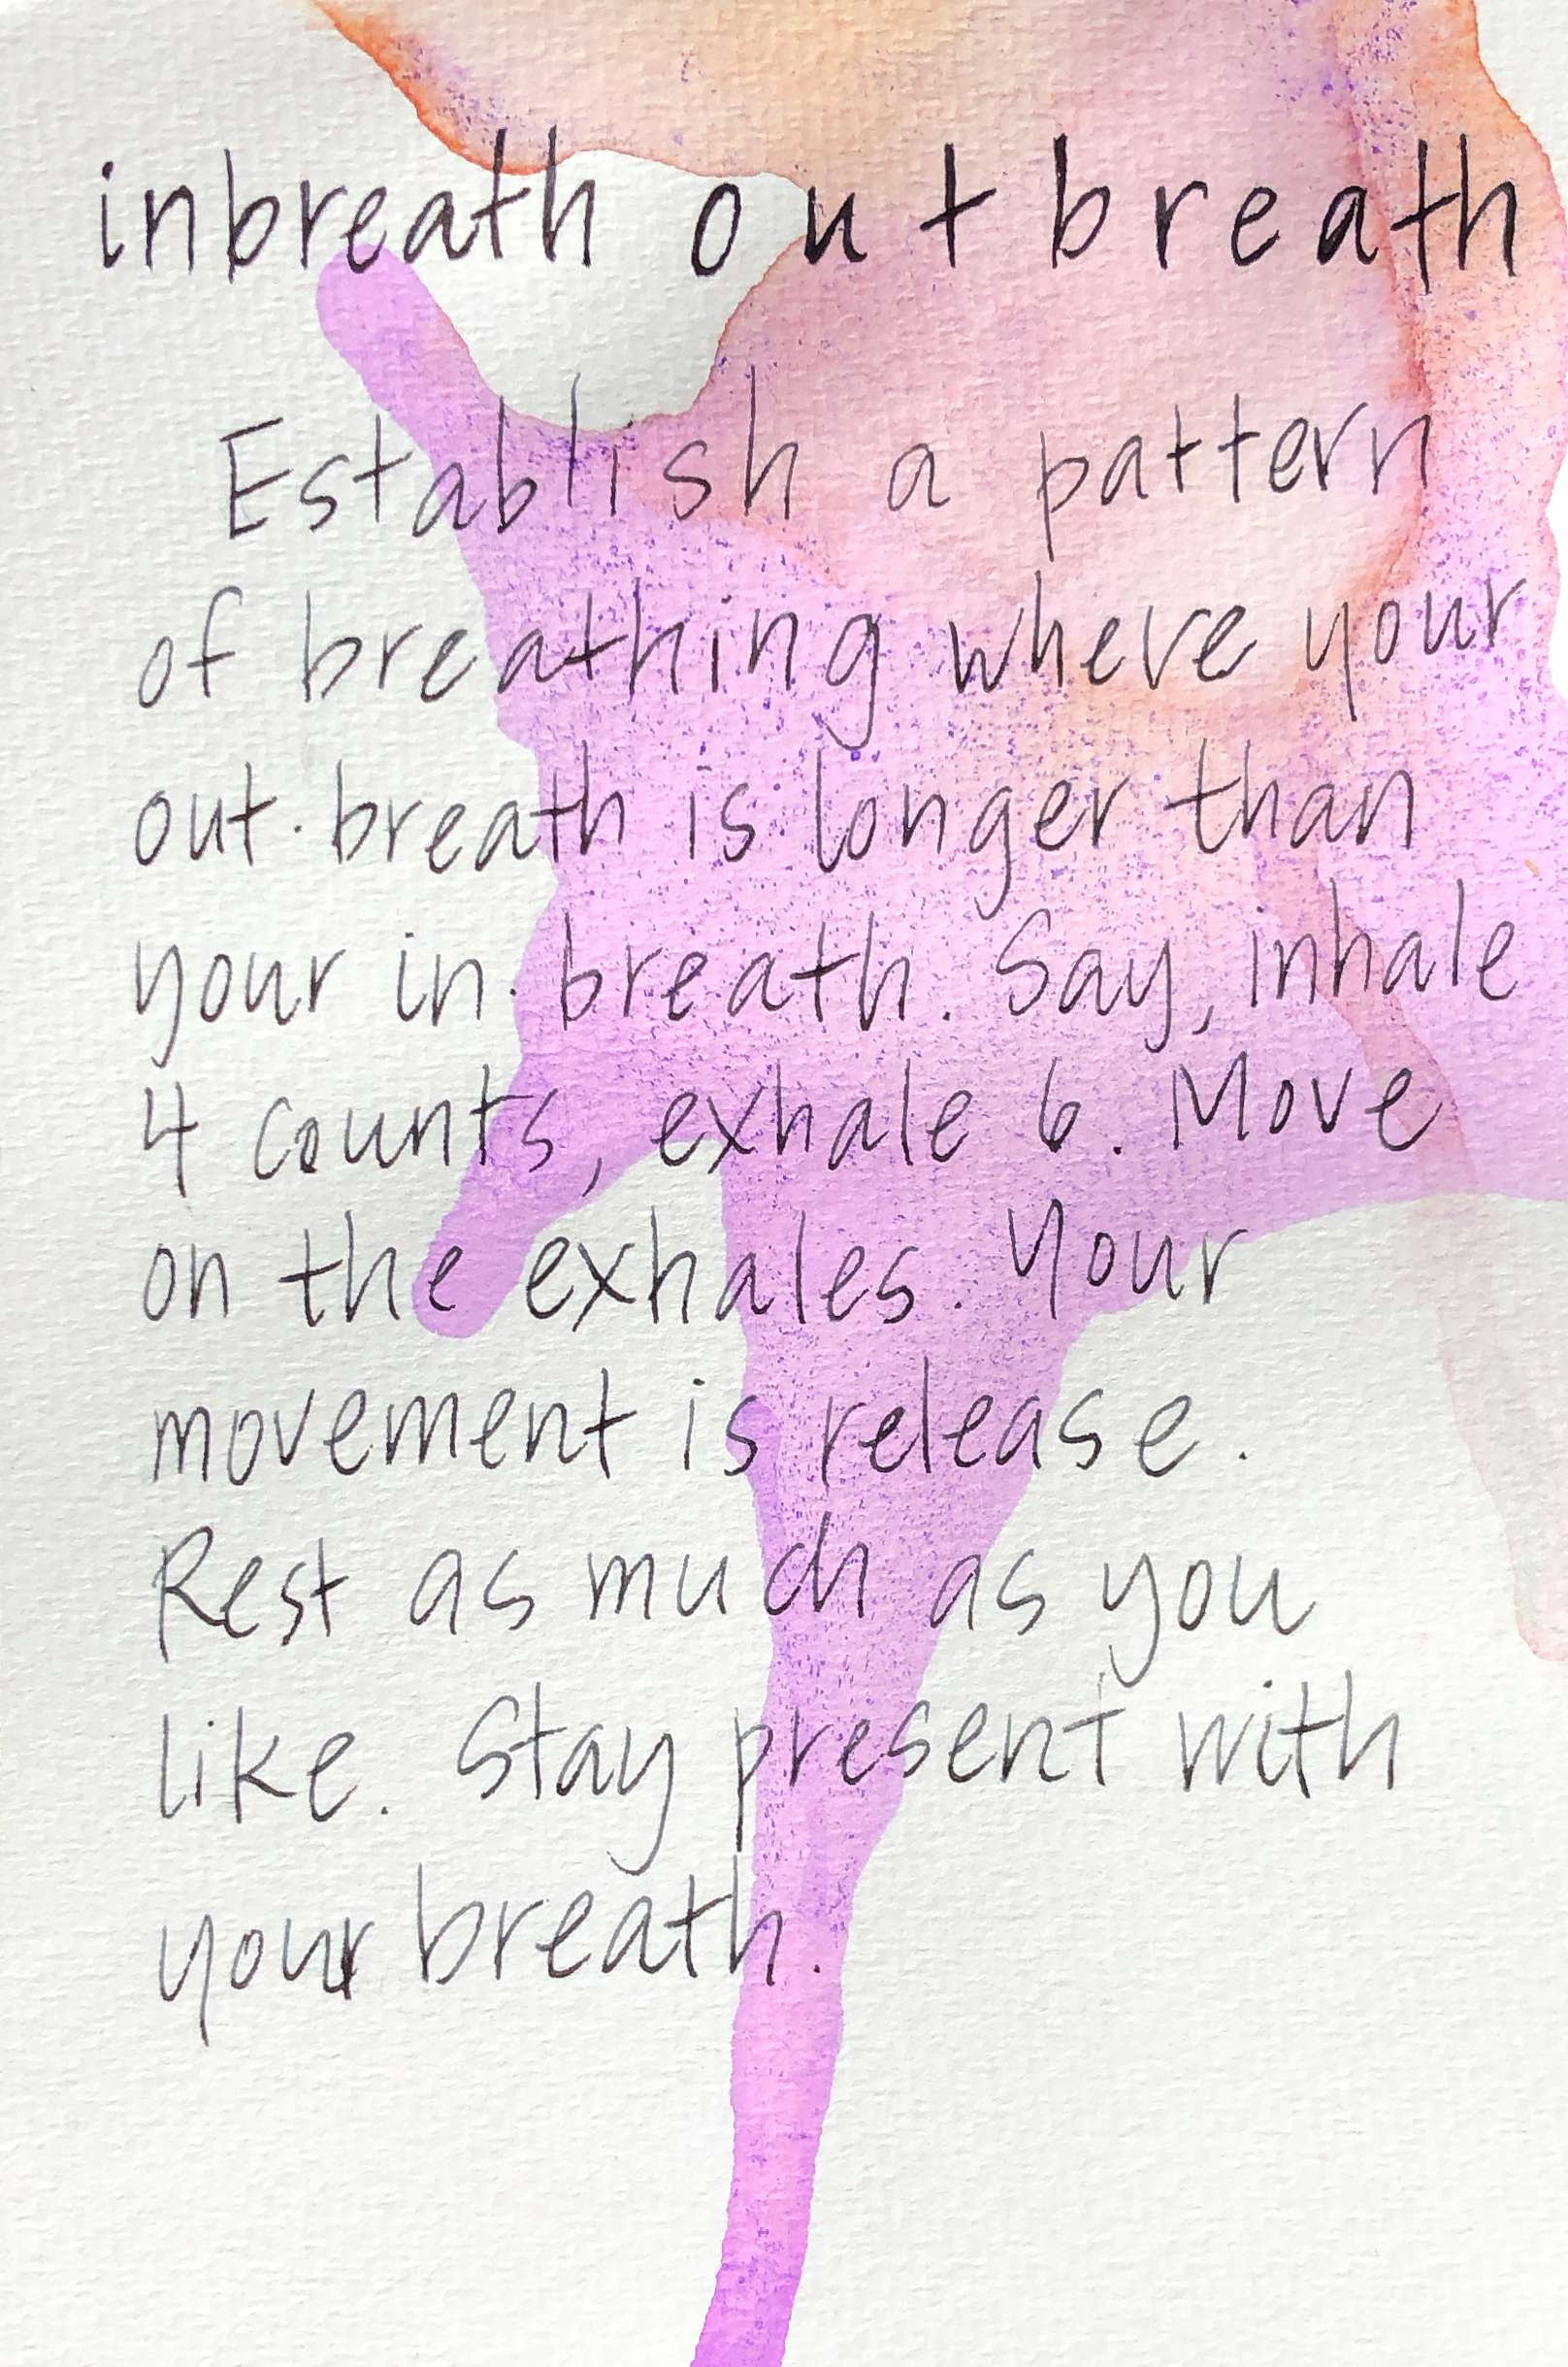 inbreath o u t b r e a t h
Establish a pattern
of breathing where your
out·breath is longer than
your in·breath. Say, inhale
4 counts, exhale 6. Move
on the exhales. Your
movement is release.
Rest as much as you
like. Stay present with
your breath.